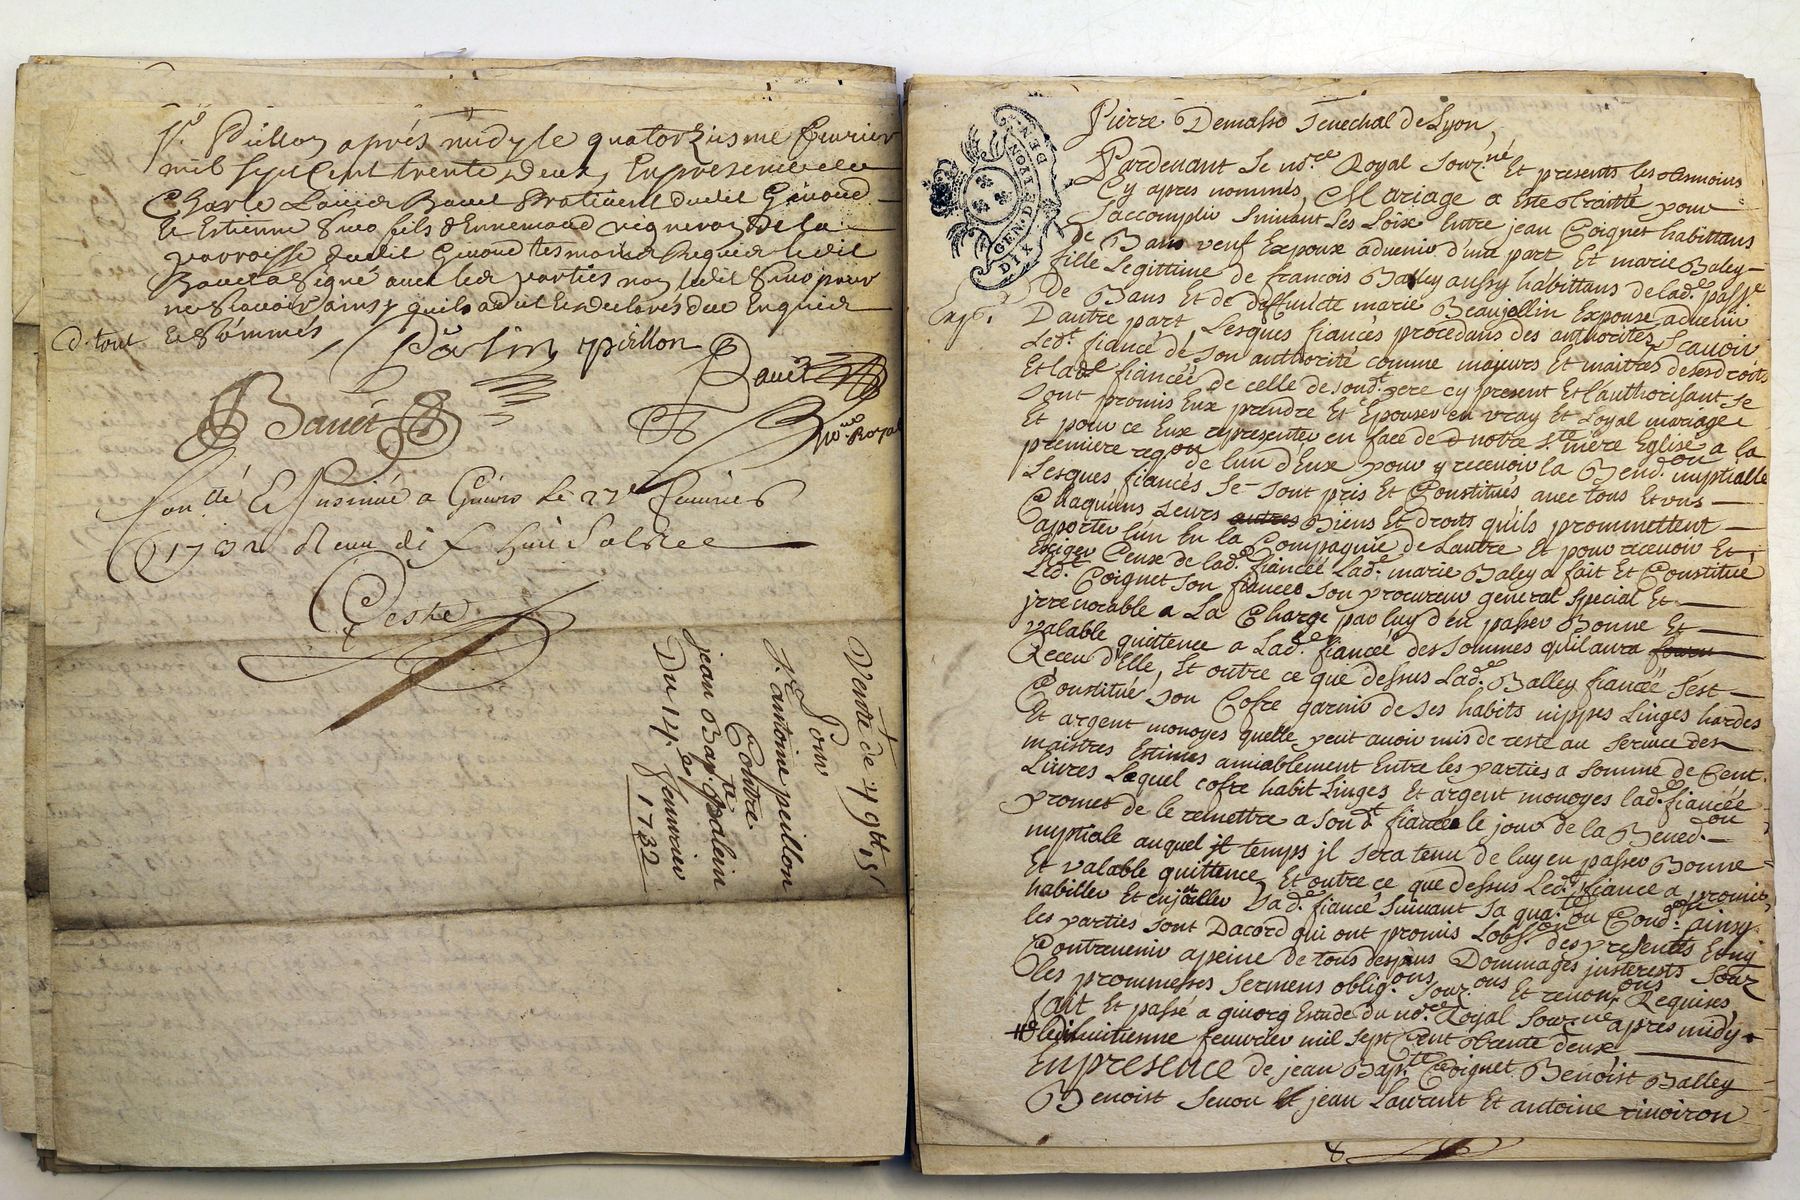 Sr. Peillon après midy le quatorzieme feuvrier
mil sept cent trente deux, En presence de
Charle Bauet Praticient dudit Giuord
et Estienne fils d'Ennemond vigneron de la
parroisse dudit Giuord tesmoins Requis ledit
Bauet a signé auec les parties non ledit pour
ne scauoir ainsy quils a dit et declaré de ce Enquis
D. tout et sommés
peillon
Bauet
Bauet
Nore. Royal
Conllé Et Insinué a Giuors le 22e feuurier
1732 Receu dix huit sols
Teste
Vente de 49lt 15s
Pour
Sr. antoine peillon
Contre
jean Bapte. Palein
Du 14e. feuvrier
1732
GEN. DE LYON
DIX DEN.
Pierre Demasso Senechal de Lyon,
Pardeuant Le nore. Royal Sourzné Et presents les tesmoins
Cy apres nommés, Mariage a Esté traitté pour
S'accomplir Suiuant Les Loix Entre jean Coignet habittans
de Bans veuf Expoux aduenir d'une part Et marie Baley
fille Legittime de francois Balley aussy habittans de lade. passe
de Bans Et de deffuncte marie Beaujollin Expouse aduenir
Exp.
D'autre part, Lesques fiancés procedans des authorités Scauoir
Ledt. fiancé de Son authorité comme majeurs et maitres deses droits
Et lade fiancée de celle de sondt. pere cy present Et L'authorisant se
Sont promis Eux prendre Et Epouser en vray Et Loyal mariage
Et pour ce Eux representer en face de notre ste mere Eglise a la
premiere reqon de lun d'Eux pour y receuoir la Bendon nuptialle
Lesques fiancés Se Sont pris Et Constitués avec tous Et vns
Chaquuns Leurs autres Biens Et droits qu'ils prommettent
aporter lun En la Compagnie de Lautre Et pour receuoir Et
Exiger Ceux de lade. fiancée Lade. marie Baley a fait Et Constitué
Ledt. Coignet son fiance son procureur general special Et
jrreuocable a La Charge par luy d'en passer Bonne Et
valable quittence a Lade. fiancée des Sommes qu'il aura
Receu d'Elle, Et outre ce que dessus Lade. Balley fiancée s'est
Constitué son Cofre garnis de ses habits nippes Linges hardes
Et argent monoyes quelle peut auoir mis de reste au seruice des
maistres Estimes amiablement Entre les parties a somme de Cent
Liures Lequel cofre habit Linges Et argent monoyes lade. fiancée
promet de le remettre a sondt fiance le jour de la Benedon
nuptiale auquel jl temps jl sera tenu de luy en passer Bonne
Et valable quittence Et outre ce que dessus Ledt. fiancé a promis
habiller Et enjoailler Lade. fiancé suiuant sa quate. ou Condon. ainsy
les parties sont Dacord qui ont promis Lobson des presentes Et ny
Contreuenir apeine de tous despans Dommages jnterests Sour
les prommesses Sermens obligons. sour. ons Et renonons Requises,
fait Et passé a giuorg Estude du nore. Royal Sourzné apres midy
le dixhuitienne feuurier mil sept Cent trente deux
En presence de jean Bapte Coignet Benoist Balley
Benoist Seuou Et jean Laurent Et antoine riuoiron